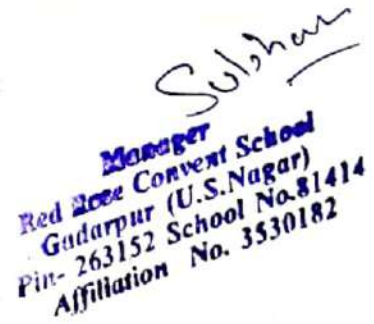 Manager
Red Rose Convent School
Gadarpur (U.S.Nagar)
Pin- 263152 School No.81414
Affiliation No. 3530182